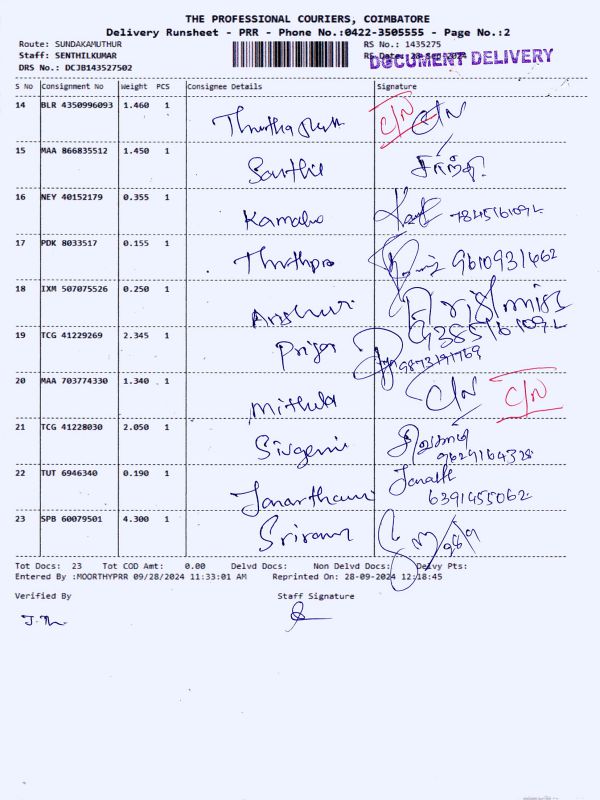 THE PROFESSIONAL COURIERS, COIMBATORE
Delivery Runsheet - PRR - Phone No.:0422-3505555 - Page No.:2
Route: SUNDAKAMUTHUR RS No.: 1435275
Staff: SENTHILKUMAR RS Date: 28-Sep-2024 DOCUMENT DELIVERY
DRS No.: DCJB143527502
S No Consignment No Weight PCS Consignee Details Signature
14 BLR 4350996093 1.460 1 C/N C/N
15 MAA 866835512 1.450 1 Santhi சாந்தி
16 NEY 40152179 0.355 1 Kamala
17 PDK 8033517 0.155 1 9610931462
18 IXM 507075526 0.250 1
19 TCG 41229269 2.345 1 Priya
20 MAA 703774330 1.340 1 Mithula C/N C/N
21 TCG 41228030 2.050 1 Sivgami
22 TUT 6946340 0.190 1 Janarthanan
6391455062
23 SPB 60079501 4.300 1 Sriram
Tot Docs: 23 Tot COD Amt: 0.00 Delvd Docs: Non Delvd Docs: Delvy Pts:
Entered By :MOORTHYPRR 09/28/2024 11:33:01 AM Reprinted On: 28-09-2024 12:18:45
Verified By Staff Signature